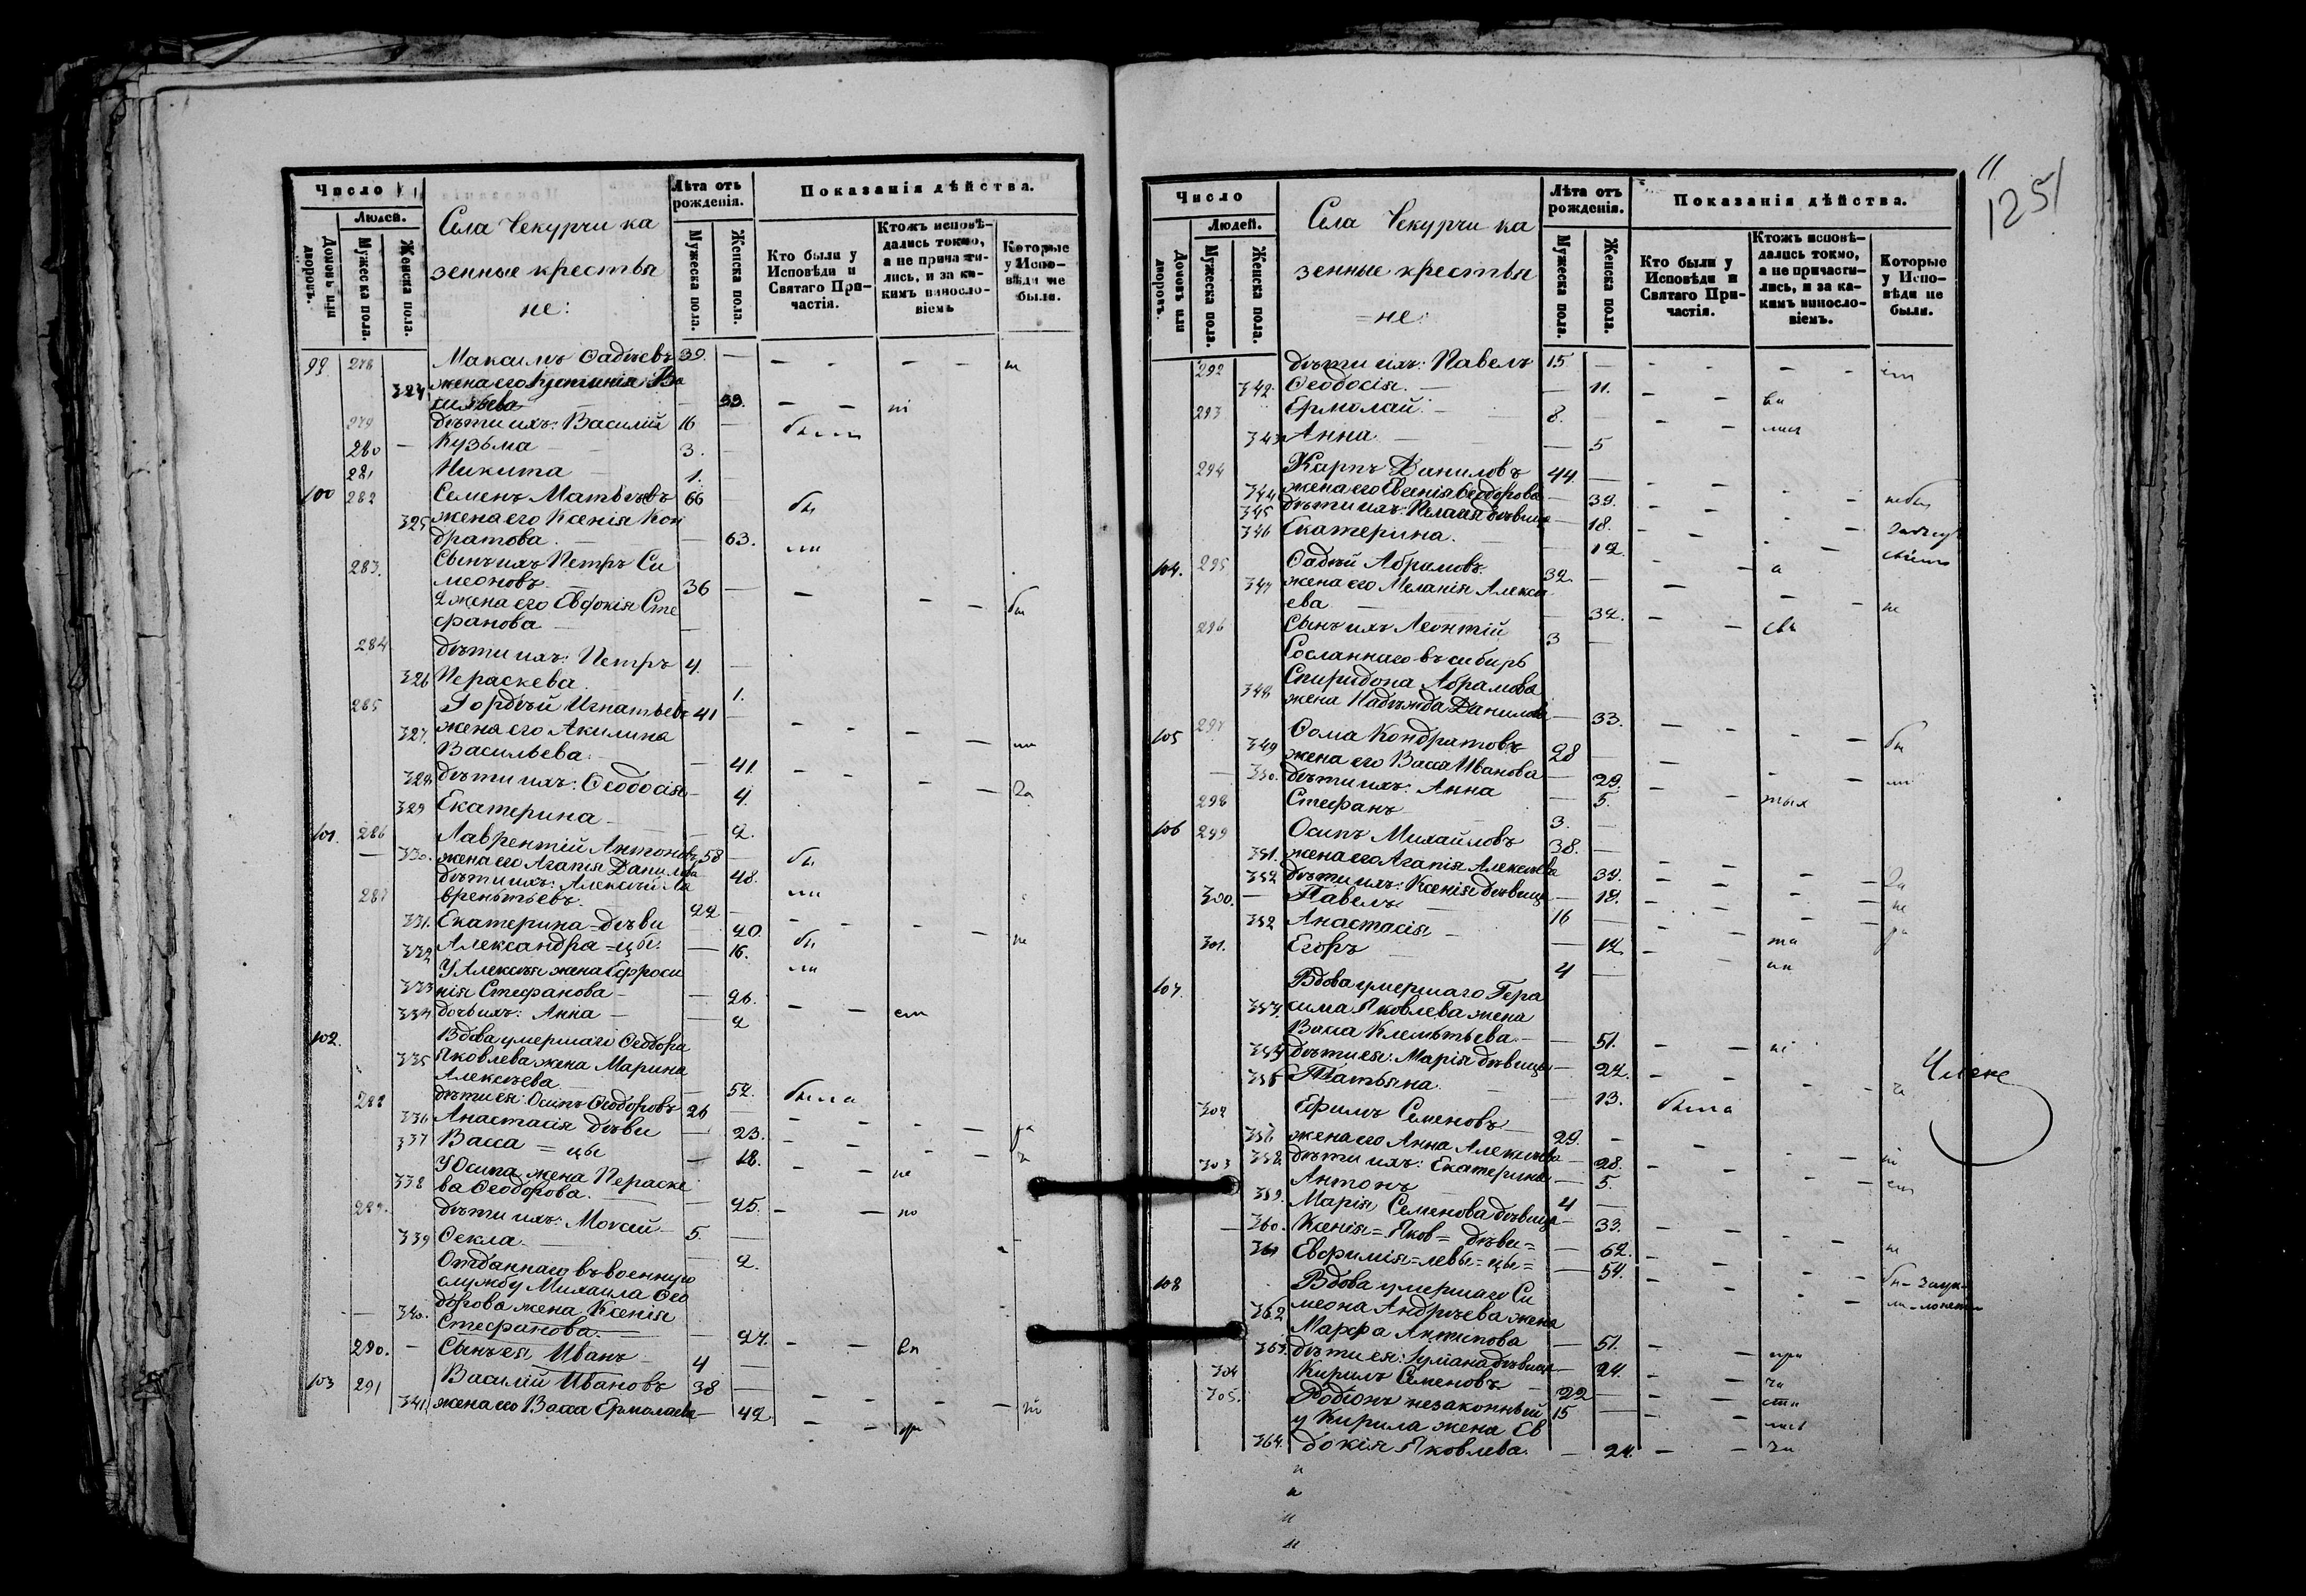 Число
Людей.
Домовъ или дворовъ.
Мужеска пола.
Женска пола.
Села Чекурчи ка
зенные крестья
не:
Лѣта отъ рожденія.
Мужеска пола.
Женска пола.
Показанія дѣйства.
Кто были у Исповѣди и Святаго Причастія.
Ктожъ исповѣдались токмо, а не причастились, и за какимъ винословіемъ
Которые у Исповѣди не были.
99 278 Максимъ Фадѣевъ 39. —
324 жена его Іустинія Ва
сильева — 39.
279 дѣти ихъ: Василій 16 — были
280 — Кузьма 3. —
281 Никита 1.
100 282 Семенъ Матвѣевъ 66 бы
325 жена его Ксенія Кон
дратова. — 63. ли
283. Сынъ ихъ Петръ Си
меоновъ 36 —
2 жена его Евдокія Сте
фанова —
284 дѣти ихъ: Петръ 4. —
326 Пераскева 1.
285 Гордѣй Игнатьевъ 41 —
327. жена его Акилина
Васильева. — 41.
328 дѣти ихъ: Ѳеодосія — 4.
329 Екатерина — 2.
101. 286 Лаврентій Антоновъ 58 — бы
330. жена его Агапія Данилова 48. ли
дѣти ихъ: Алексѣй Ла
287 врентьевъ. 22 —
331. Екатерина = дѣви — 20. бы
332 Александра = цы. — 16. ли
У Алексѣя жена Ефроси
333 нія Стефанова — 26.
334 дочь ихъ: Анна — 2
102. Вдова умершаго Ѳеодора
335 Яковлева жена Марина
Алексѣева — 52. была
288 дѣти ея: Осипъ Ѳеодоровъ 26 —
336 Анастасія дѣви — 23.
337 Васса = цы — 18.
У Осипа жена Пераске
338 ва Ѳеодорова. — 25.
289. дѣти ихъ: Моѵсей 5. —
339 Ѳекла 2.
Отданнаго въ военную
службу Михаила Ѳео
340. дорова жена Ксенія
Стефанова. — 27.
290. — Сынъ ея Иванъ 4 —
103 291 Василій Ивановъ 38 —
341 жена его Васса Ермолаева — 42
11
1251
Число
Людей.
Домовъ или дворовъ.
Мужеска пола.
Женска пола.
Села Чекурчи ка
зенные крестья
=не:
Лѣта отъ рожденія.
Мужеска пола.
Женска пола.
Показанія дѣйства.
Кто были у Исповѣди и Святаго Причастія.
Ктожъ исповѣдались токмо, а не причастились, и за какимъ винословіемъ.
Которые у Исповѣди не были.
292 дѣти ихъ: Павелъ 15. —
342. Ѳеодосія. — 11.
293 Ермолай 8. —
343 Анна — 5
294 Карпъ Даниловъ 44. —
344 жена его Евгенія Ѳеодорова — 39.
345 дѣти ихъ: Пелагея дѣвица — 18.
346 Екатерина. 12
104. 295 Фадѣй Абрамовъ 32. —
347 жена его Меланія Алексѣ
ева — 32.
296 Сынъ ихъ Леонтій 3 —
Сосланнаго въ сибирь
Спиридона Абрамова
348 жена Надѣжда Данилова — 33.
105 297 Ѳома Кондратовъ 28 —
349 жена его Васса Иванова — 29.
350. дѣти ихъ: Анна — 5.
298 Стефанъ 3. —
106 299 Осипъ Михайловъ 38. —
351. жена его Агапія Алексѣева 39.
352 дѣти ихъ: Ксенія дѣвица — 18.
300. — Павелъ 16 —
352 Анастасія — 12
301. Егоръ 4 —
107. Вдова умершаго Гера
353. сима Яковлева жена
Васса Клементьева. — 51.
354 дѣти ея: Марія дѣвица — 24.
355 Татьяна. — 13. была
302 Ефимъ Семеновъ 29. —
356 жена его Анна Алексѣева — 28.
303 358. дѣти ихъ: Екатерина — 5.
Антонъ 4 —
359. Марія Семенова дѣвица — 33.
360. Ксенія = Яков = дѣви = — 62.
361 Евфимія = левы = цы = — 54.
108 Вдова умершаго Си
362 меона Андрѣева жена
Марфа Антипова — 51.
363. дѣти ея: Іуліана дѣвица — 24.
304 Кирилъ Семеновъ 22 —
305. Родіонъ незаконный 15 —
у Кирила жена Ев
364. докія Яковлева. — 24.